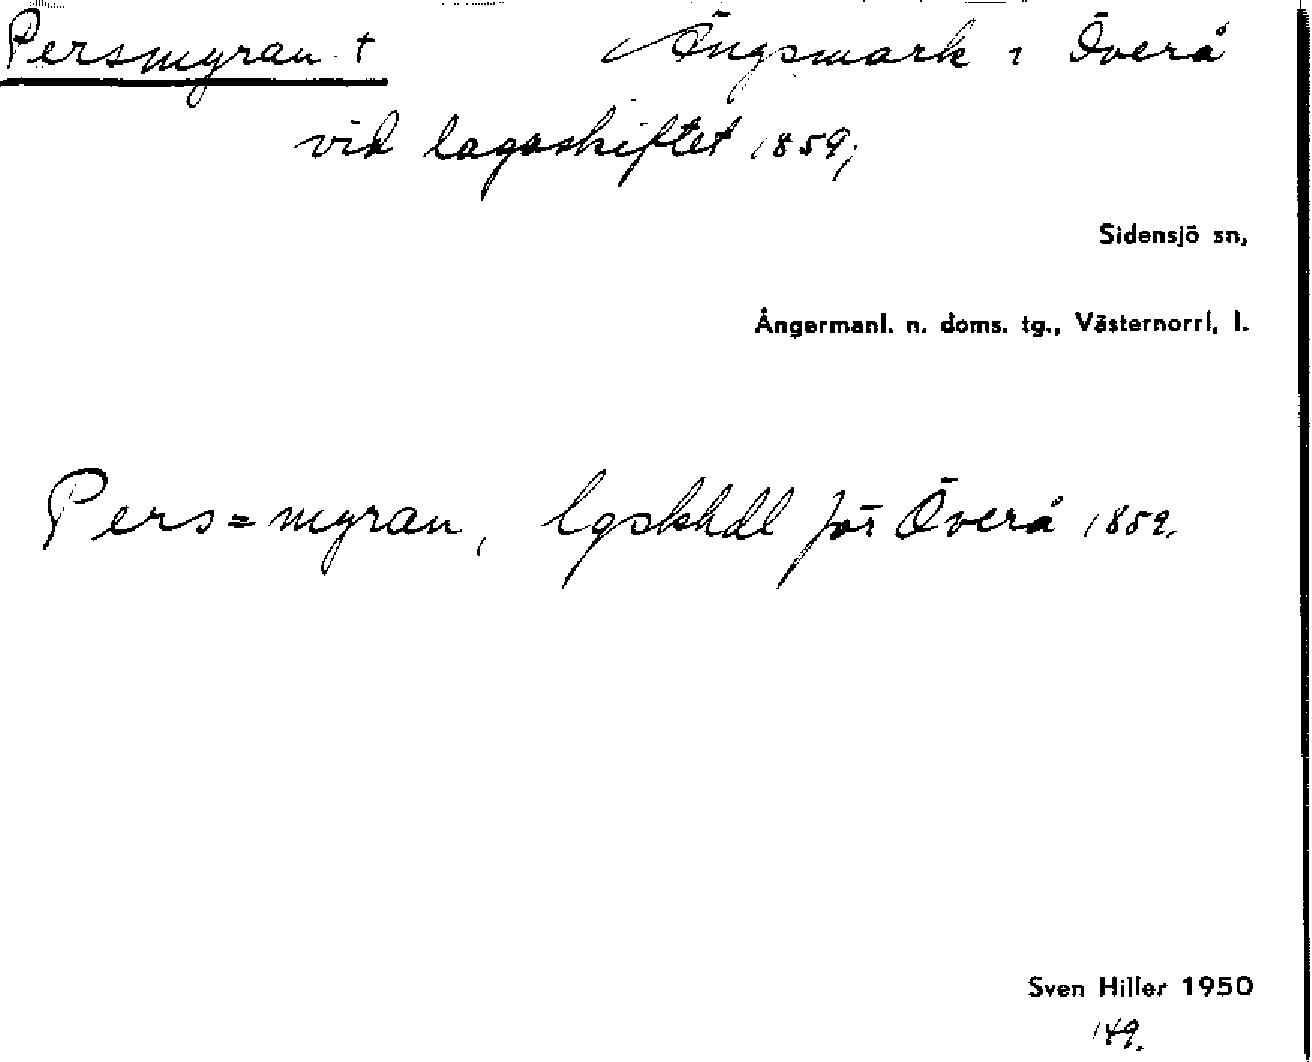 Persmyran † Ängsmark i Överå
vid lagaskiftet 1859;
Sidensjö sn,
Ångermanl. n. doms. tg., Västernorrl, l.
Pers=myran, lgskhdl för Överå 1859.
Sven Hiller 1950
149.